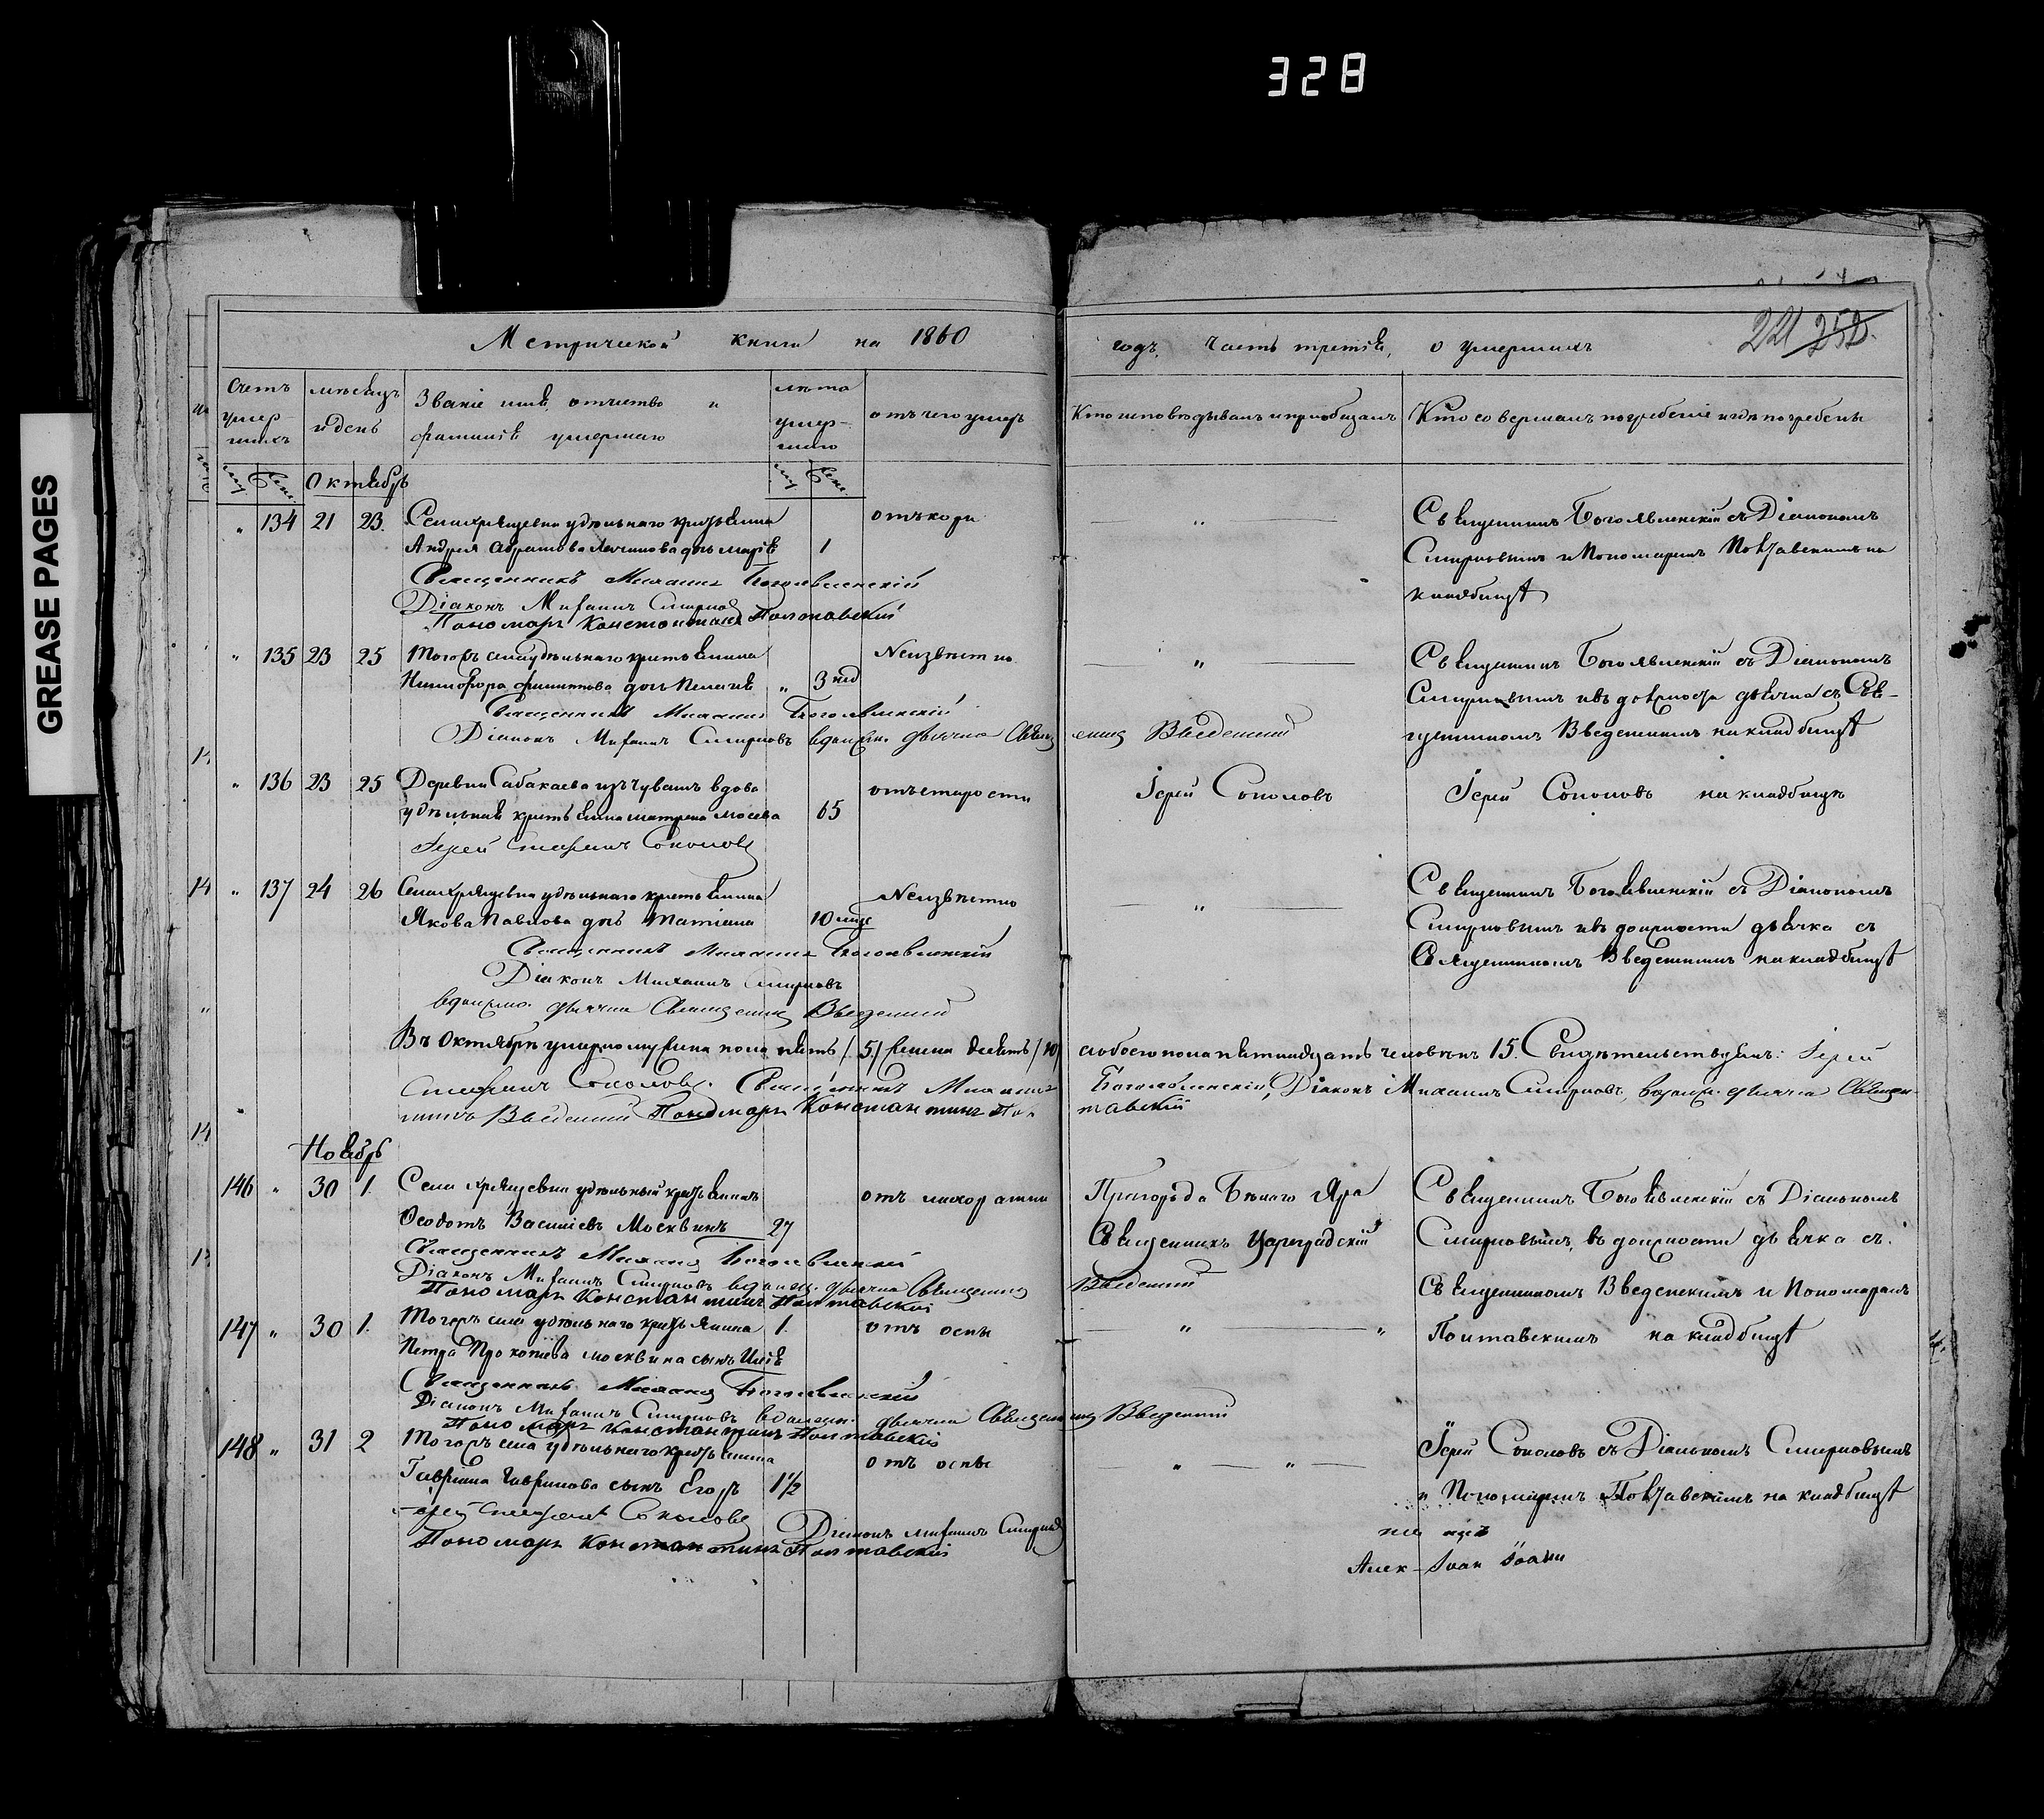 328
GREASE PAGES
221 252.
Метрической книги на 1860 годъ, часть третія, о умершихъ
Счетъ умершихъ
мѣсяцъ и день
Званіе имя, отчество и фамилія умершаго
лѣта умершаго
отъ чего умеръ
Кто исповѣдывалъ и пріобщалъ
Кто совершалъ погребеніе и гдѣ погребены
муж. женс. муж. женс.
Октябрь
" 134 21 23. Села Хрящевки удѣльнаго крестьянина отъ кори " Священникъ Богоявленскій съ Діакономъ
Андрея Абрамова дочь Марія 1 Смирновымъ и Пономаремъ Полтавскимъ на
Священникъ Михаилъ Богоявленскій кладбищѣ
Діаконъ Михаилъ Смирновъ
Пономарь Константинъ Полтавскій
" 135 23 25 Тогожъ села удѣльнаго крестьянина Неизвѣстно " Священникъ Богоявленскій съ Діакономъ
Никифора Филиппова дочь Пелагія " 3 нед Смирновымъ и въ должности дьячка Свя-
Священникъ Михаилъ Богоявленскій
Діаконъ Михаилъ Смирновъ в должн. дьячка Священникъ Введенскій щенникомъ Введенскимъ на кладбищѣ
" 136 23 25 Деревни Сабакаева изъ Чувашъ вдова отъ старости Іерей Соколовъ Іерей Соколовъ на кладбищѣ
удѣльная крестьянина Матрена Мосева 65
Іерей Стефанъ Соколовъ
" 137 24 26 Села Хрящевки удѣльнаго крестьянина Неизвѣстно " Священникъ Богоявленскій съ Діакономъ
Якова Павлова дочь Татіана 10 мце Смирновымъ и въ должности дьячка съ
Священникъ Михаилъ Богоявленскій Священникомъ Введенскимъ на кладбищѣ
Діаконъ Михаилъ Смирновъ
в должно. дьячка Священникъ Введенскій
Въ Октябрѣ умерло мужеска пола пять /5/ женска десять /10/ а обоего пола пятнадцать человѣкъ 15. Свидѣтельствуемъ: Іерей
Стефанъ Соколовъ. Священникъ Михаилъ Богоявленскій, Діаконъ Михаилъ Смирновъ, в должн. дьячка Священ-
никъ Введенскій Пономарь Константинъ Полтавскій
Ноябрь
146 " 30 1. Села Хрящевки удѣльный крестьянинъ отъ лихорадки Пригорода Бѣлаго Яра Священникъ Богоявленскій съ Діакономъ
Ѳеодотъ Васильевъ Москвинъ 27 Священникъ Цареградскій Смирновымъ, въ должности дьячка съ
Священникъ Михаилъ Богоявленскій
Діаконъ Михаилъ Смирновъ в должн. дьячка Священникъ Введенскій Священникомъ Введенскимъ и Пономаремъ
Пономарь Константинъ Полтавскій
147 " 30 1. Тогожъ села удѣльнаго крестьянина 1. отъ оспы " " Полтавскимъ на кладбищѣ
Петра Прокопьева Москвина сынъ Илія
Священникъ Михаилъ Богоявленскій
Діаконъ Михаилъ Смирновъ в должн. дьячка Священникъ Введенскій
Пономарь Константинъ Полтавскій
148 " 31 2 Тогожъ села удѣльнаго крестьянина отъ оспы " " Іерей Соколовъ съ Діакономъ Смирновымъ
Гаврила Гаврилова сынъ Егоръ 1½ и Пономаремъ Полтавскимъ на кладбищѣ
Іерей Стефанъ Соколовъ
Діаконъ Михаилъ Смирновъ
Пономарь Константинъ Полтавскій
Алек - Іоан Іоанн